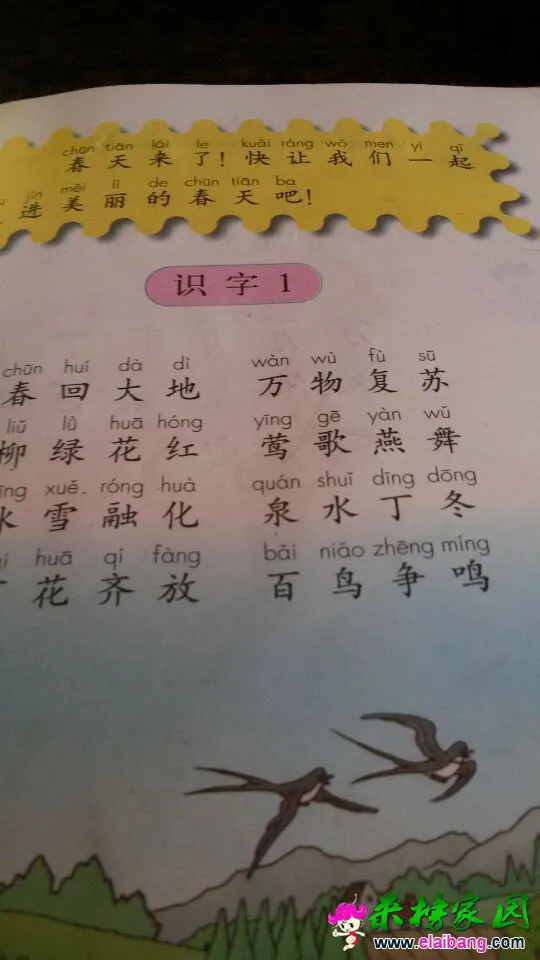 chūn tiān lái le kuài ràng wǒ men yì qǐ
春天来了！快让我们一起
jìn měi lì de chūn tiān ba
进美丽的春天吧！
识字1
chūn huí dà dì wàn wù fù sū
春回大地 万物复苏
liǔ lǜ huā hóng yīng gē yàn wǔ
柳绿花红 莺歌燕舞
xuě róng huà quán shuǐ dīng dōng
雪融化 泉水丁冬
huā qí fàng bǎi niǎo zhēng míng
花齐放 百鸟争鸣
来榜家园
www.elaibang.com